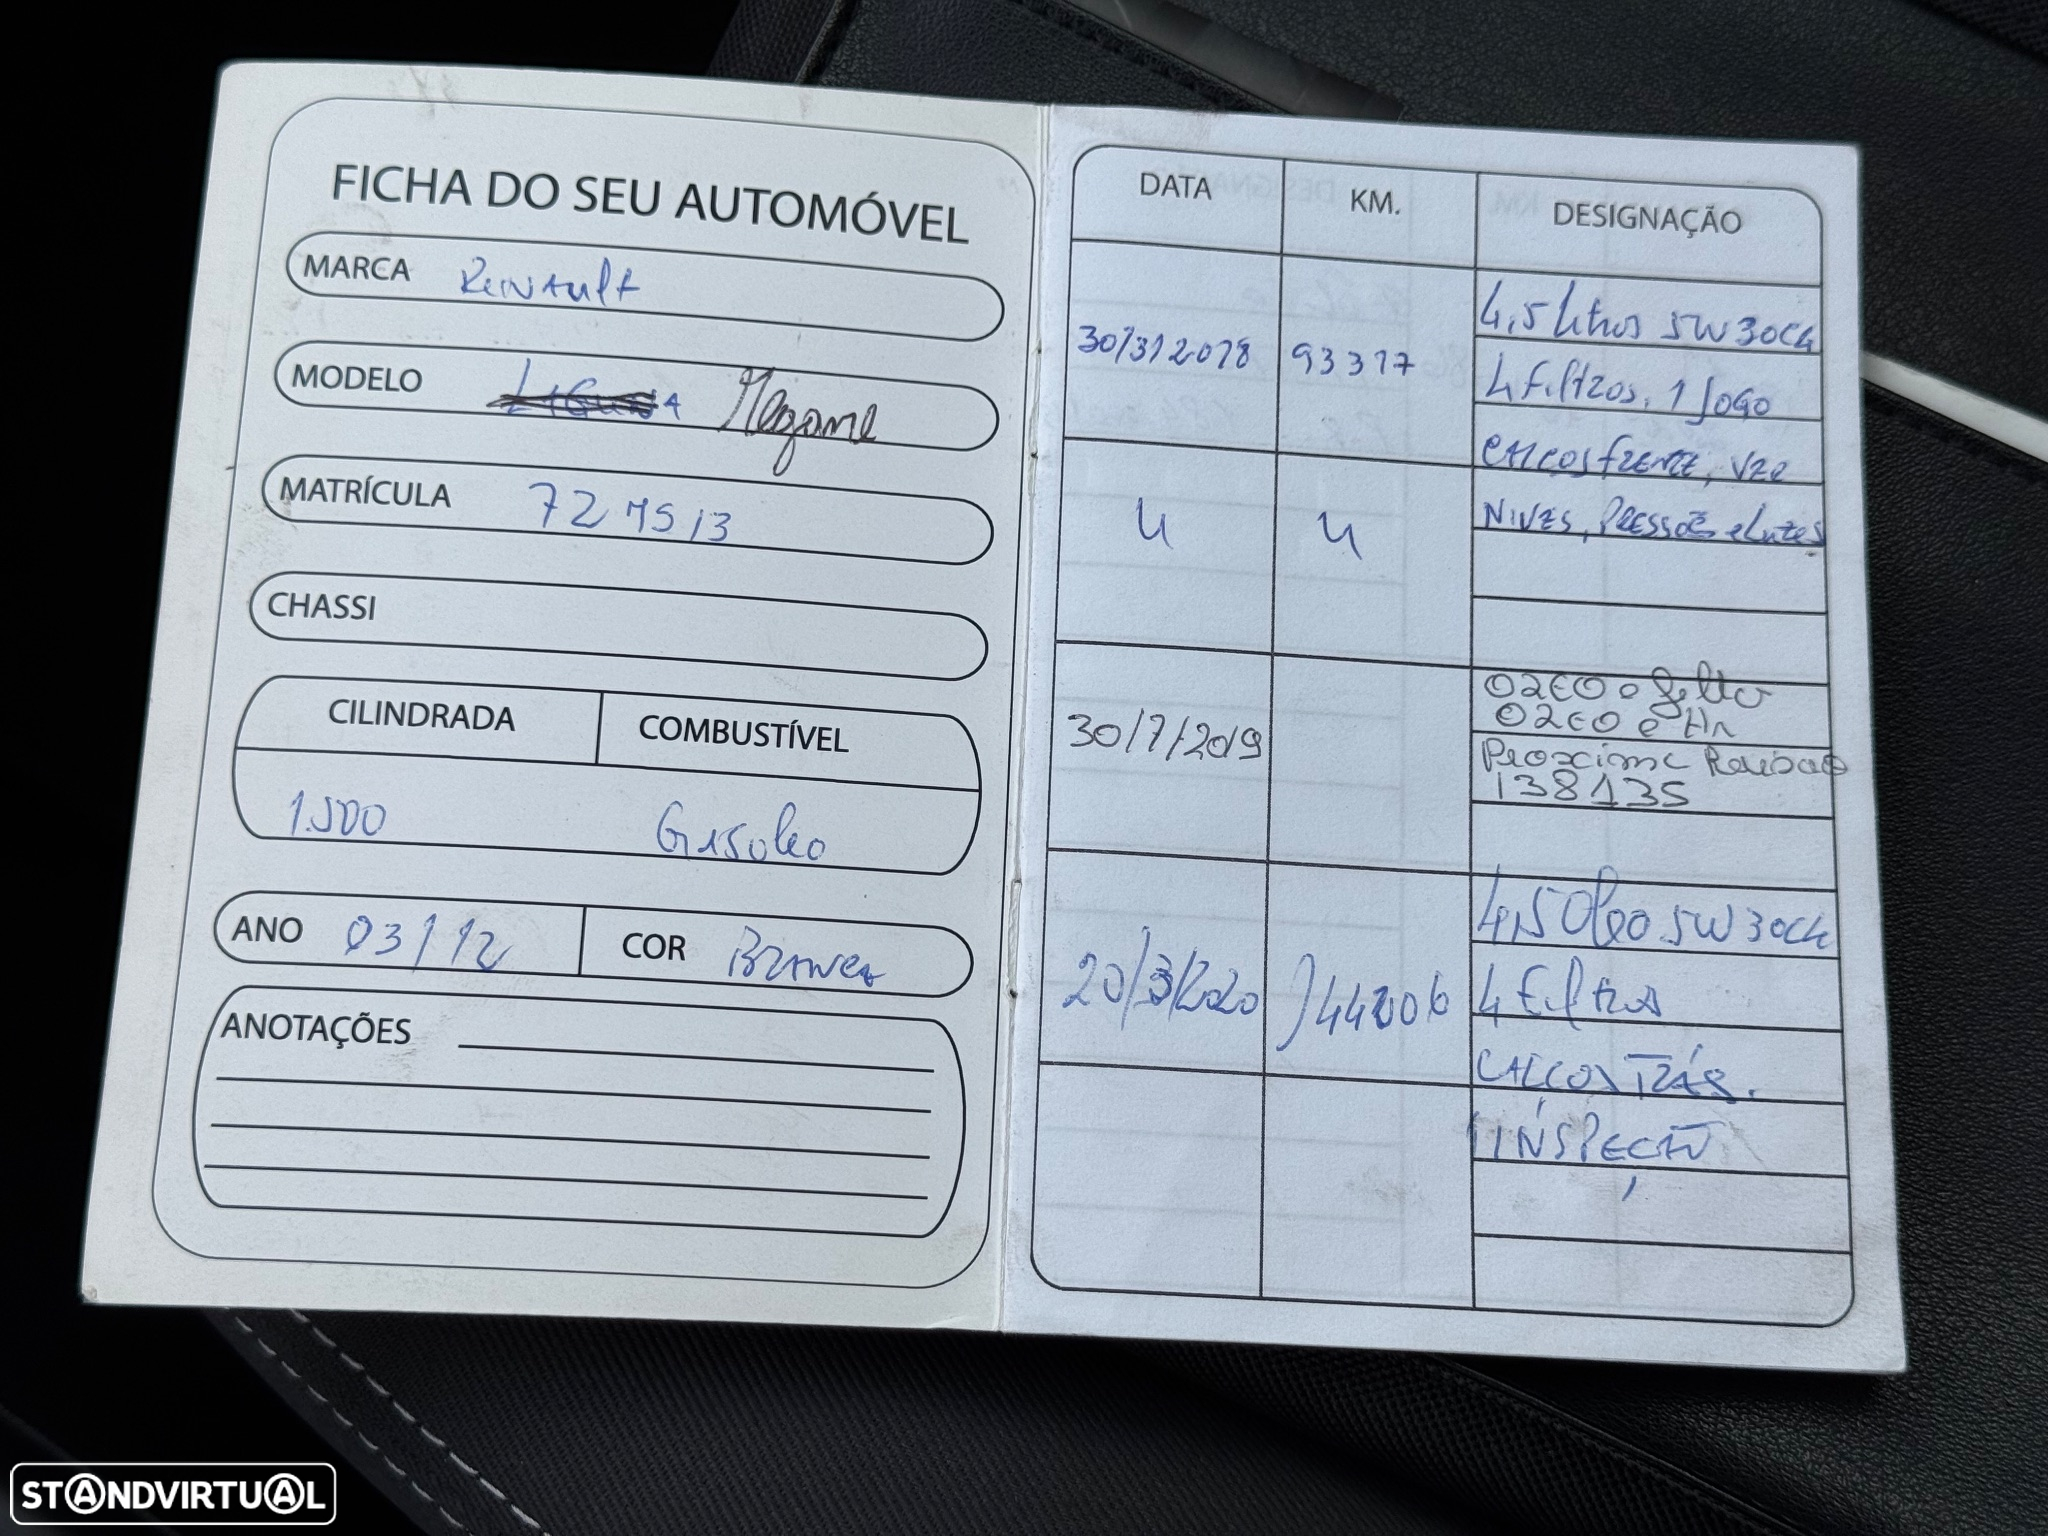 FICHA DO SEU AUTOMÓVEL
MARCA Renault
MODELO Megane
MATRÍCULA 72 MS 13
CHASSI
CILINDRADA COMBUSTÍVEL
1.500 Gasoleo
ANO 03/12 COR Branca
ANOTAÇÕES
DATA KM. DESIGNAÇÃO
30/3/2018 93317 4,5 litros 5W30C4
4 filtros, 1 Jogo
CALCOS FRENTE, VER
NIVES, PRESSÕES e Luzes
02EO o
02EO e
Proxima Revisao
138135
30/7/2019
4,5 Oleo 5W30C4
20/3/2020 144206 4 Filtros
CALÇOS TRÁS.
1 INSPEÇÃO
STANDVIRTUAL